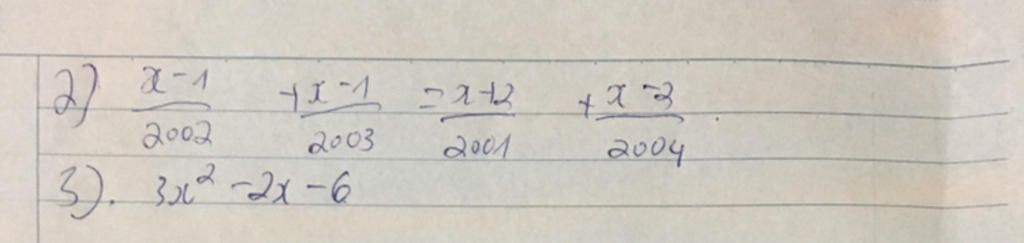 2) x-1/2002 + x-1/2003 = x+2/2001 + x-2/2004.
3). 3x² -2x -6